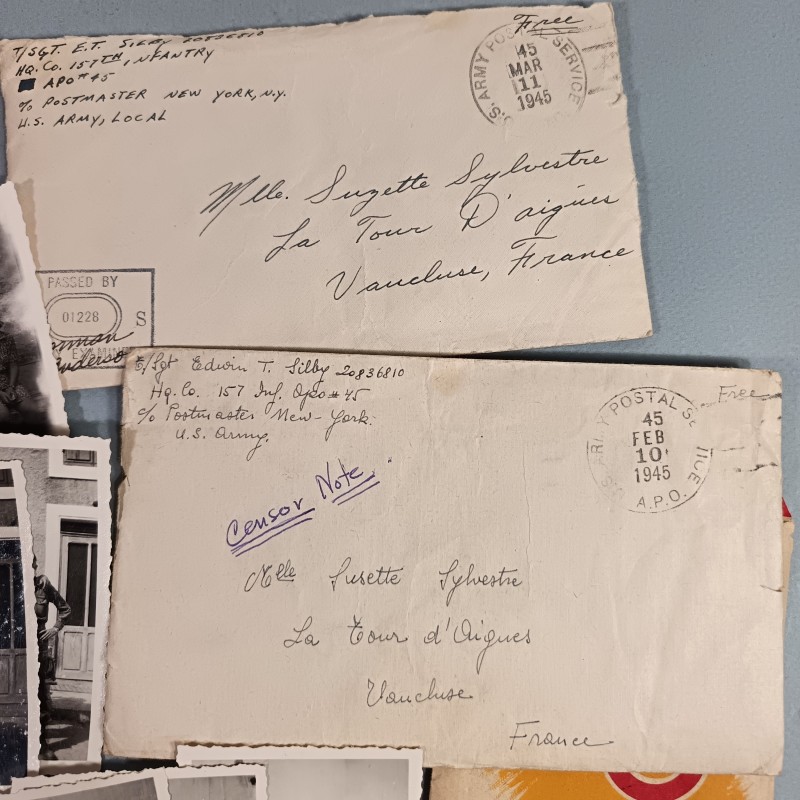 Free
T/SGT. E.T. SILBY 20836810
HQ. CO. 157TH INFANTRY
APO #45
c/o POSTMASTER NEW YORK, N.Y.
U.S. ARMY, LOCAL
U.S. ARMY POSTAL SERVICE
45
MAR
11
1945
Mlle. Suzette Sylvestre
La Tour D'aigues
Vaucluse, France
PASSED BY
01228
S
EXAMINER
T/Sgt Edwin T. Silby 20836810
Hq. Co. 157 Inf. Apo #45
c/o Postmaster New-York.
U.S. Army.
Free
ARMY POSTAL SERVICE
45
FEB
10
1945
A.P.O.
Censor Note
Mlle Susette Sylvestre
La Tour d'Aigues
Vaucluse
France